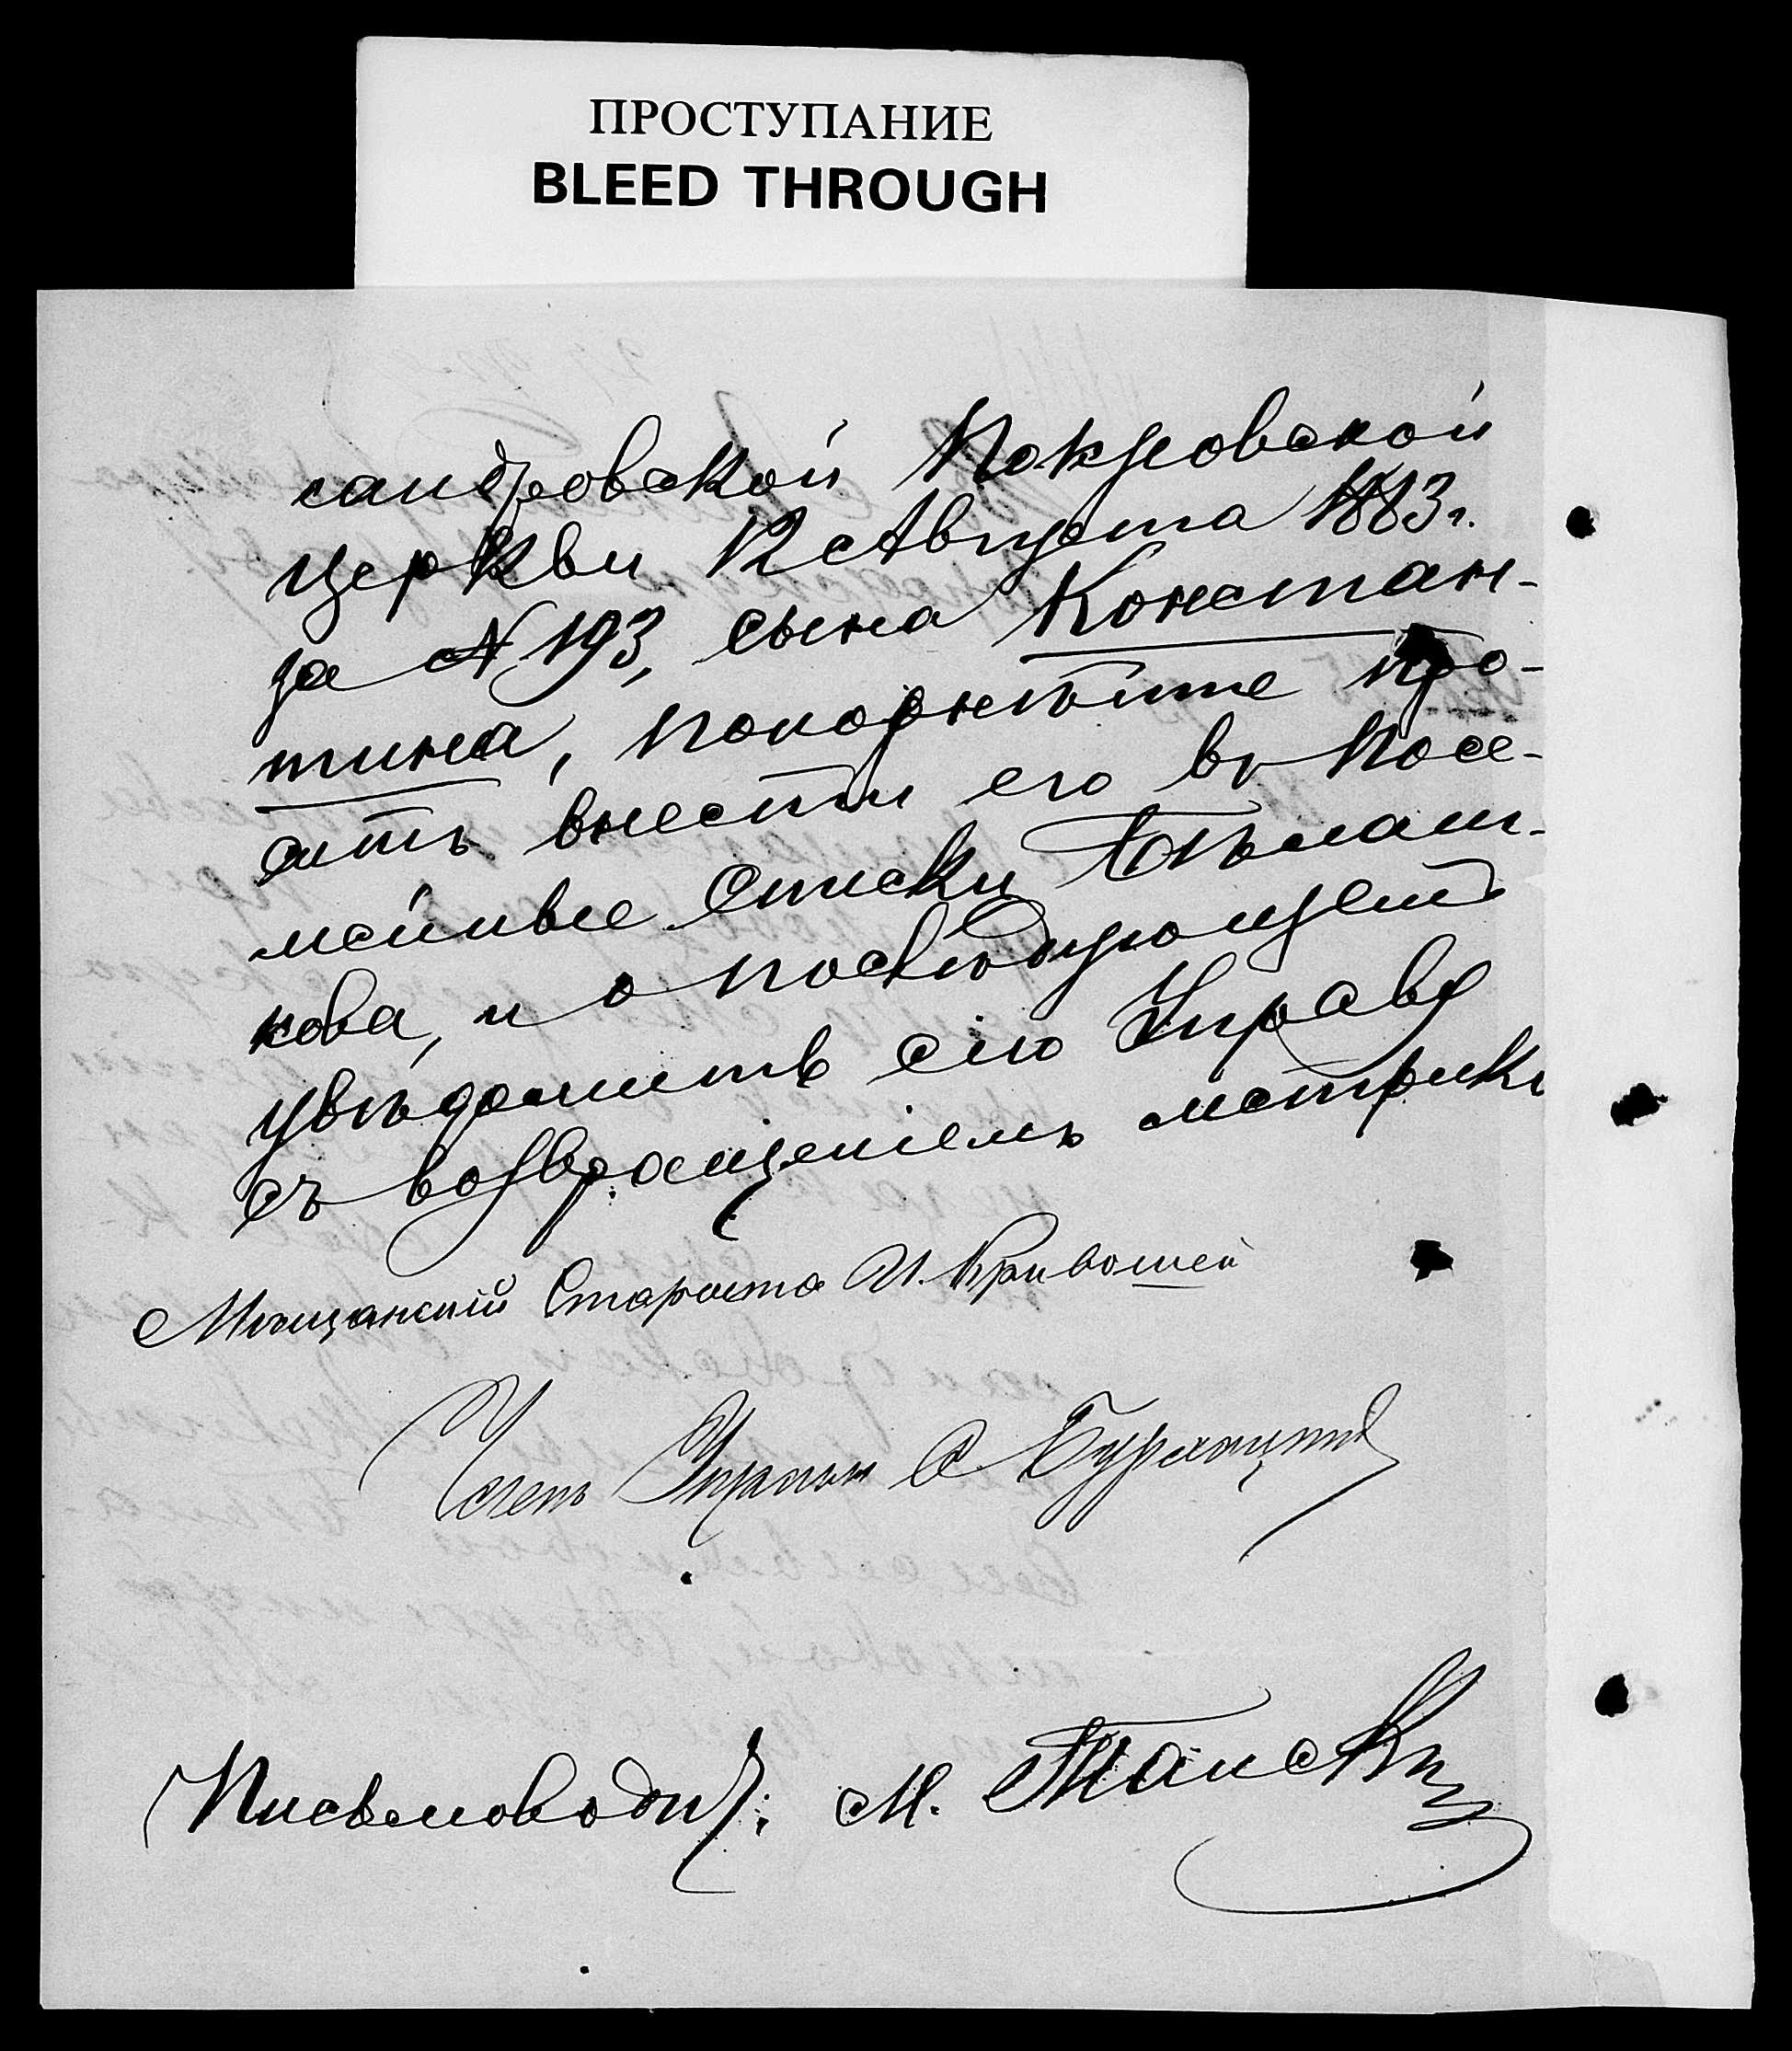 ПРОСТУПАНИЕ
BLEED THROUGH
сандровской Покровской
церкви 12 Августа 1883 г.
за № 193, сына Констан-
тина, покорнѣйше про-
ситъ внести его въ посе-
мейные списки
кова, и о послѣдующемъ
увѣдомить сію Управу
съ возвращеніемъ метрики
Мѣщанскій Староста И. Кривошей
Членъ Управы С.
Письмоводит: М.